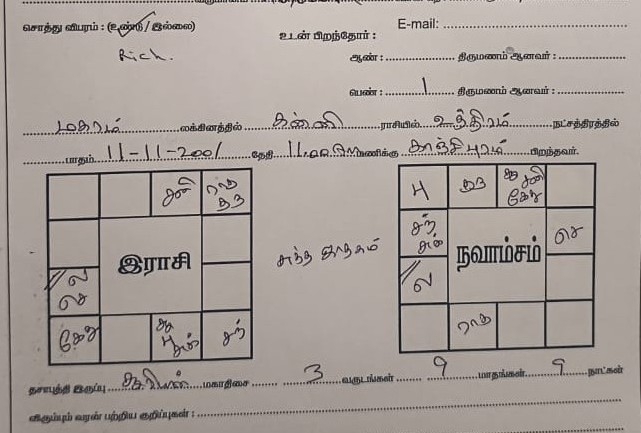 சொத்து விபரம் : (உண்டு / இல்லை) E-mail:
Rich. உடன் பிறந்தோர் :
ஆண் : திருமணம் ஆனவர் :
பெண் : 1 திருமணம் ஆனவர் :
மகரம் லக்கினத்தில் கன்னி ராசியில் உத்திரம் நட்சத்திரத்தில்
பாதம் 11-11-2001 தேதி 11.00 மணிக்கு காஞ்சிபுரம் பிறந்தவர்.
சனி ராகு குரு
இராசி
ல செ
கேது சூ பு சுக் சந்
சுத்த ஜாதகம்
பு குரு சூ சனி கேது
சந் சுக் நவாம்சம் செ
ல
ராகு
தசாபுத்தி இருப்பு சூரியன் மகாதிசை 3 வருடங்கள் 9 மாதங்கள் 9 நாட்கள்
விரும்பும் வரன் பற்றிய குறிப்புகள் :